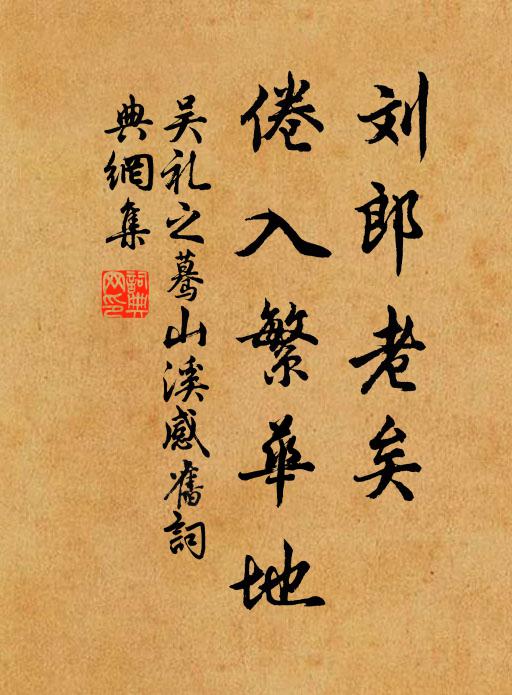 刘郎老矣
倦入繁华地
吴礼之蓦山溪感舊詞
典網集
詞典网印